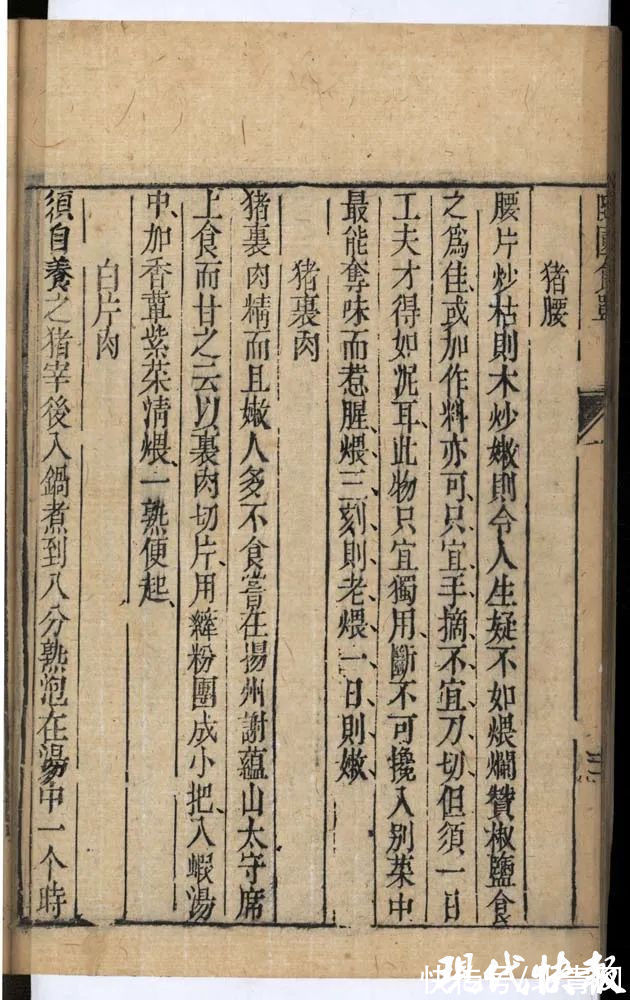 隨園食單
猪腰
腰片炒枯則木炒嫩則令人生疑不如煨爛蘸椒鹽食
之爲佳或加作料亦可只宜手摘不宜刀切但須一日
工夫才得如泥耳此物只宜獨用斷不可攙入别菜中
最能奪味而惹腥煨三刻則老煨一日則嫩
猪裏肉
猪裏肉精而且嫩人多不食嘗在揚州謝蘊山太守席
上食而甘之云以裏肉切片用縴粉團成小把入蝦湯
中加香蕈紫菜清煨一熟便起
白片肉
須自養之猪宰後入鍋煮到八分熟泡在湯中一个時
現代快報